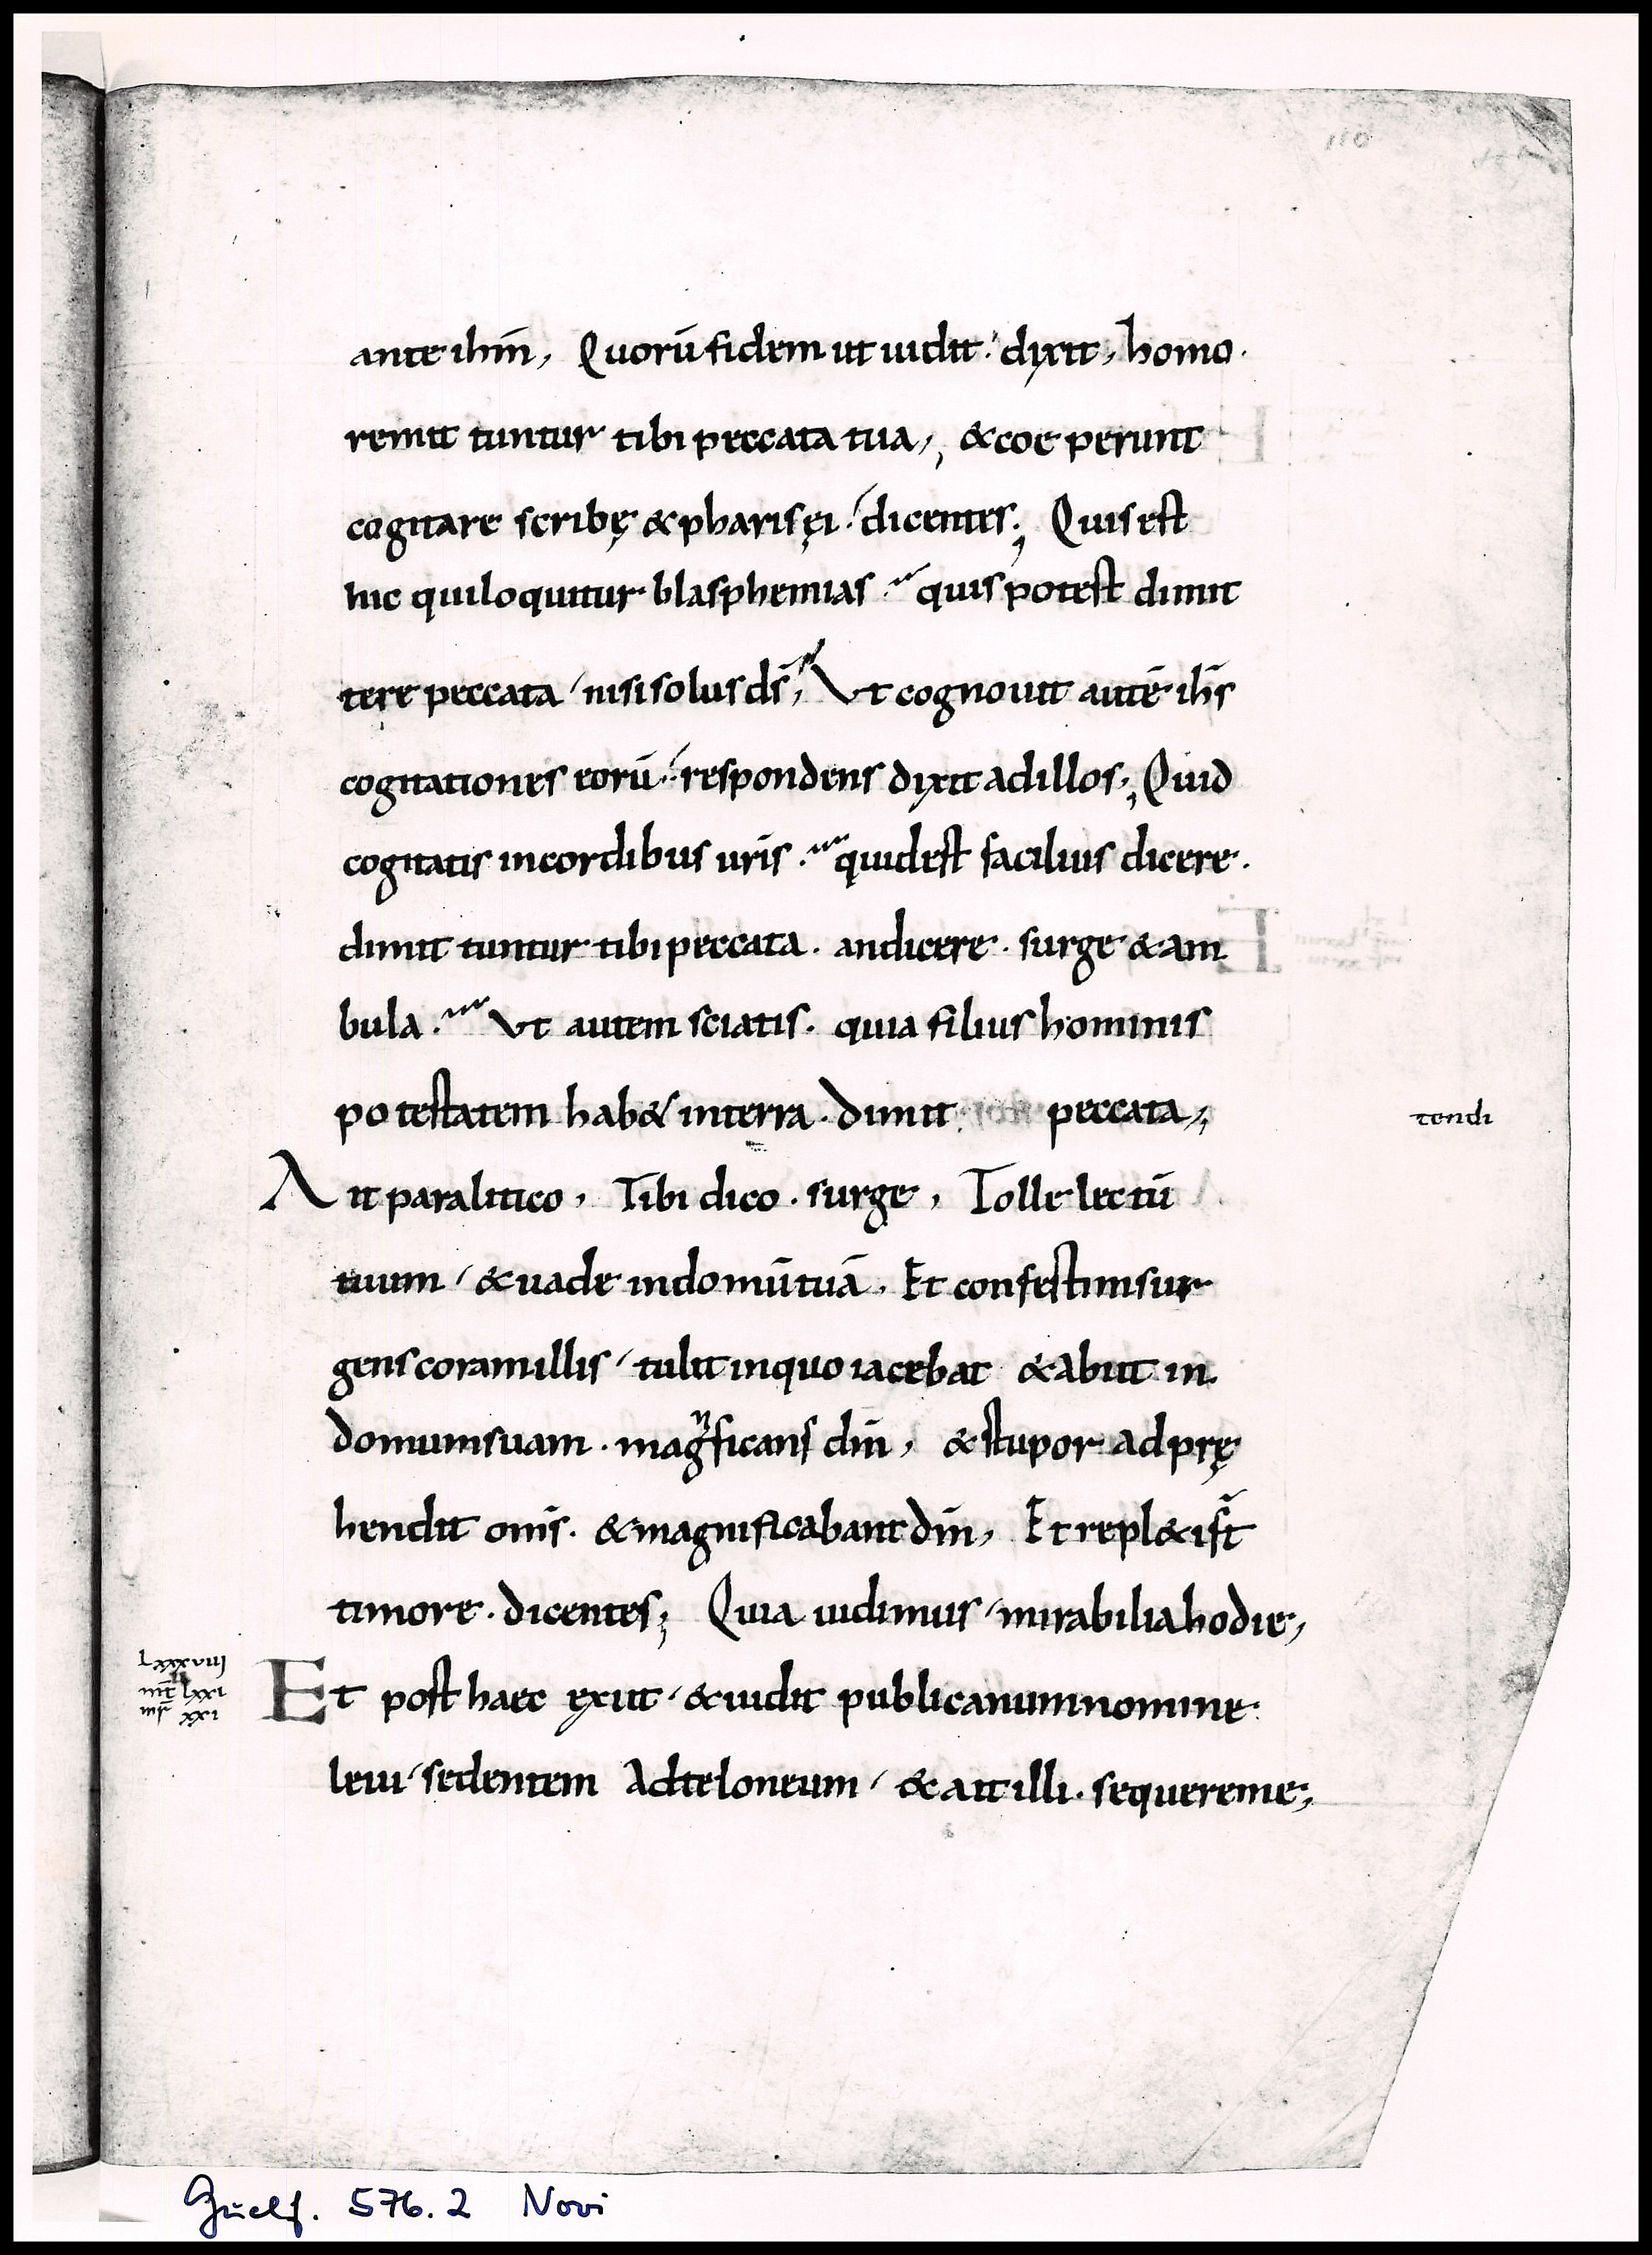 ante ihm̄, Quorū fidem ut uidit· dixit, homo·
remit tuntur tibi peccata tua, & coe perunt
cogitare scribę & pharisęi· dicentes; Quis est
hic qui loquitur blasphemias· quis potest dimit
tere peccata nisi solus d̄s, Ut cognouit autē ih̄s
cogitationes eorū· respondens dixit ad illos; Quid
cogitatis in cordibus ur̄is· quid est facilius dicere·
dimit tuntur tibi peccata· an dicere· surge & am
bula· Ut autem sciatis· quia filius hominis
po testatem hab& in terra· dimit peccata;
tendi
Ait paralitico, Tibi dico· surge, Tolle lectū
tuum & uade in domū tuā, Et confestim sur
gens coram illis tulit in quo iacebat & abiit in
domum suam· magnificans dm̄, & stupor adprę
hendit om̄s· & magnificabant dm̄, Et repl& is̄t
timore· dicentes; Quia uidimus mirabilia hodie,
Lxxxviij
mt̄ lxxi
mr̄ xxi
Et post haec exiit & uidit publicanum nomine
leui sedentem Ad teloneum & ait illi· sequere me;
Guelf. 576.2 Novi